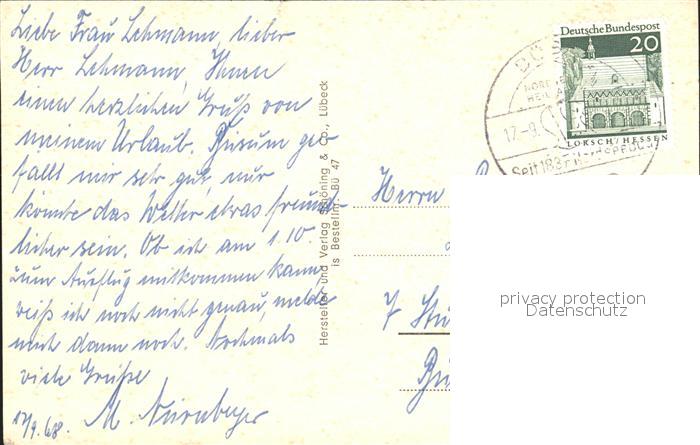 Liebe Frau Lehmann, lieber
Herr Lehmann, Ihnen
einen herzlichen Gruß von
meinem Urlaub. Büsum ge-
fällt mir sehr gut, nur
könnte das Wetter etwas freund-
licher sein. Ob ich am 1.10
zum Ausflug mitkommen kann,
weiß ich noch nicht genau, melde
mich dann noch. Nochmals
viele Grüße
M. Nürnberger
17/9.68.
Hersteller und Verlag Schöning & Co., Lübeck
is Bestellnr. Bü 47
Deutsche Bundespost
20
LORSCH/HESSEN
BÜ
NORD
HEIL
17.-9.
Seit 183
Herrn
7 Stu
privacy protection
Datenschutz